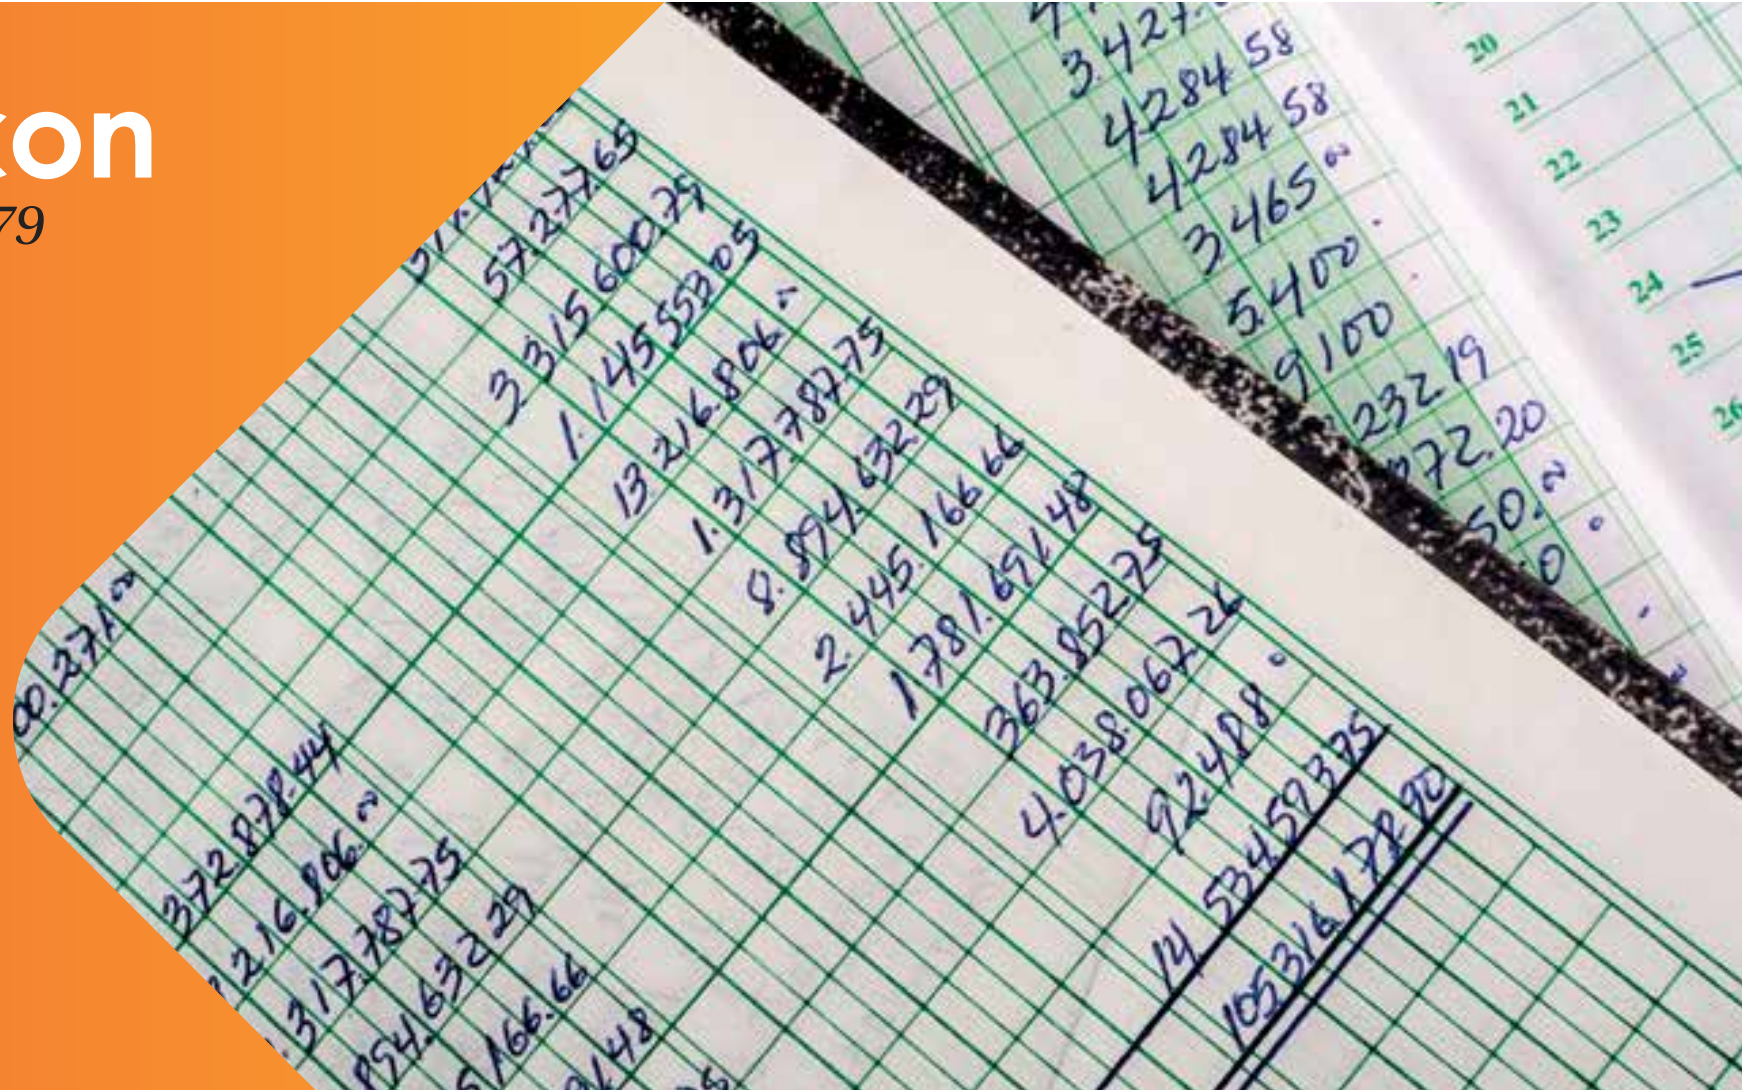 con
79
572.777.65
3 315 600.79
1.145 553 05
13 216.806.~
1.317.787.75
8.894.632 29
2.445.166 66
1.781.691.48
363.852.75
4.038.067.26
92.488 °
14 534.597 375
105 316.178.90
00.271 ~
372.878.44
216.806.~
317.787.75
894.632 29
166.66
148
3.427.
4284 58
4284 58
3465 ~
5.400 .
9100
232.19
72.20
50. ~
0 °
20
21
22
23
24
25
26